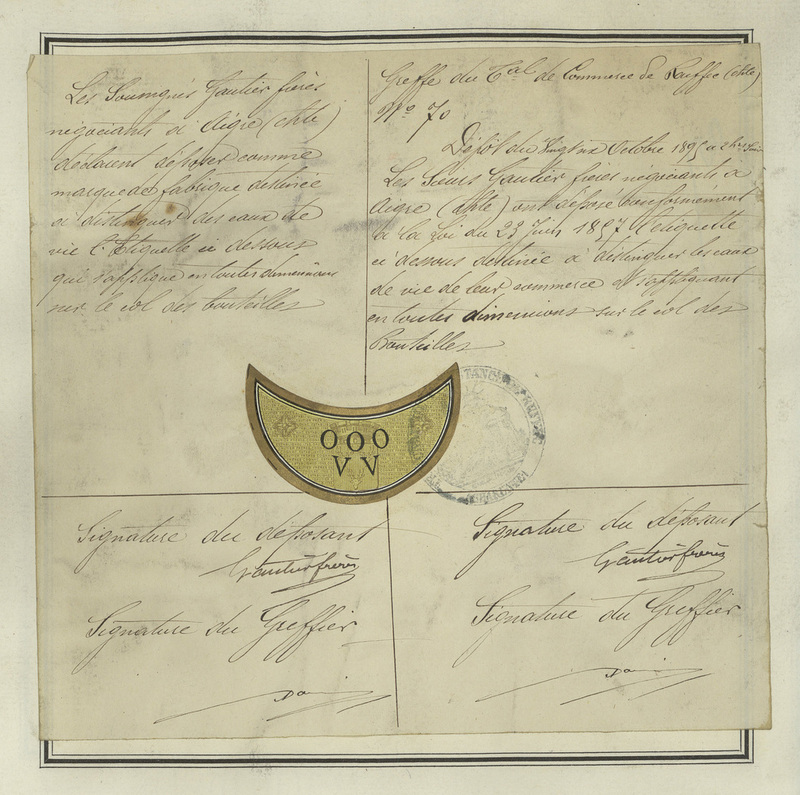 Les Soussignés Gautier frères
négociants à Aigre (chte)
déclarent déposer comme
marque de fabrique destinée
à distinguer des eaux de
vie l'Etiquette ci dessous
qui s'applique en toutes dimensions
sur le col des bouteilles
Greffe du Cal de Commerce de Ruffec (chte)
No 70
Dépôt du Vingt Octobre 1895 à 2 hres
Les Sieurs Gautier frères négociants à
Aigre (chte) ont déposé conformément
à la Loi du 23 Juin 1857 l'étiquette
ci dessous destinée à distinguer les eaux
de vie de leur commerce et s'appliquant
en toutes dimensions sur le col des
Bouteilles
OOO
VV
Signature du déposant
Gautier frères
Signature du Greffier
Signature du déposant
Gautier frères
Signature du Greffier